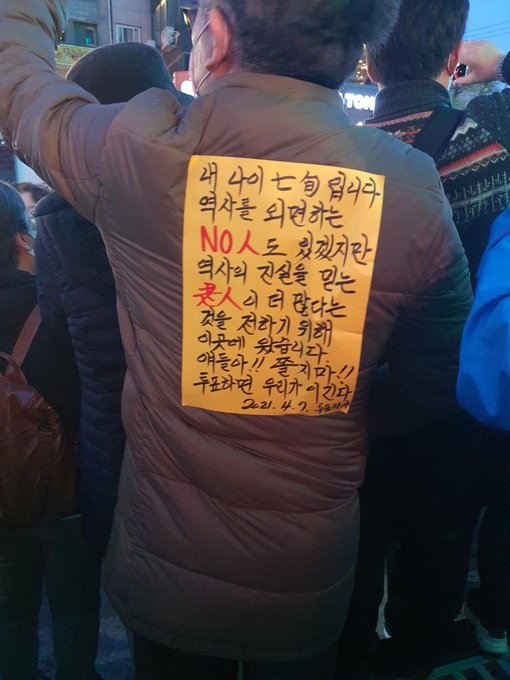 내 나이 七旬 됩니다
역사를 외면하는
NO人도 있겠지만
역사의 진실을 믿는
老人이 더 많다는
것을 전하기 위해
이곳에 왔습니다.
얘들아!! 쫄지마!!
투표하면 우리가 이긴다.
2021. 4. 7.